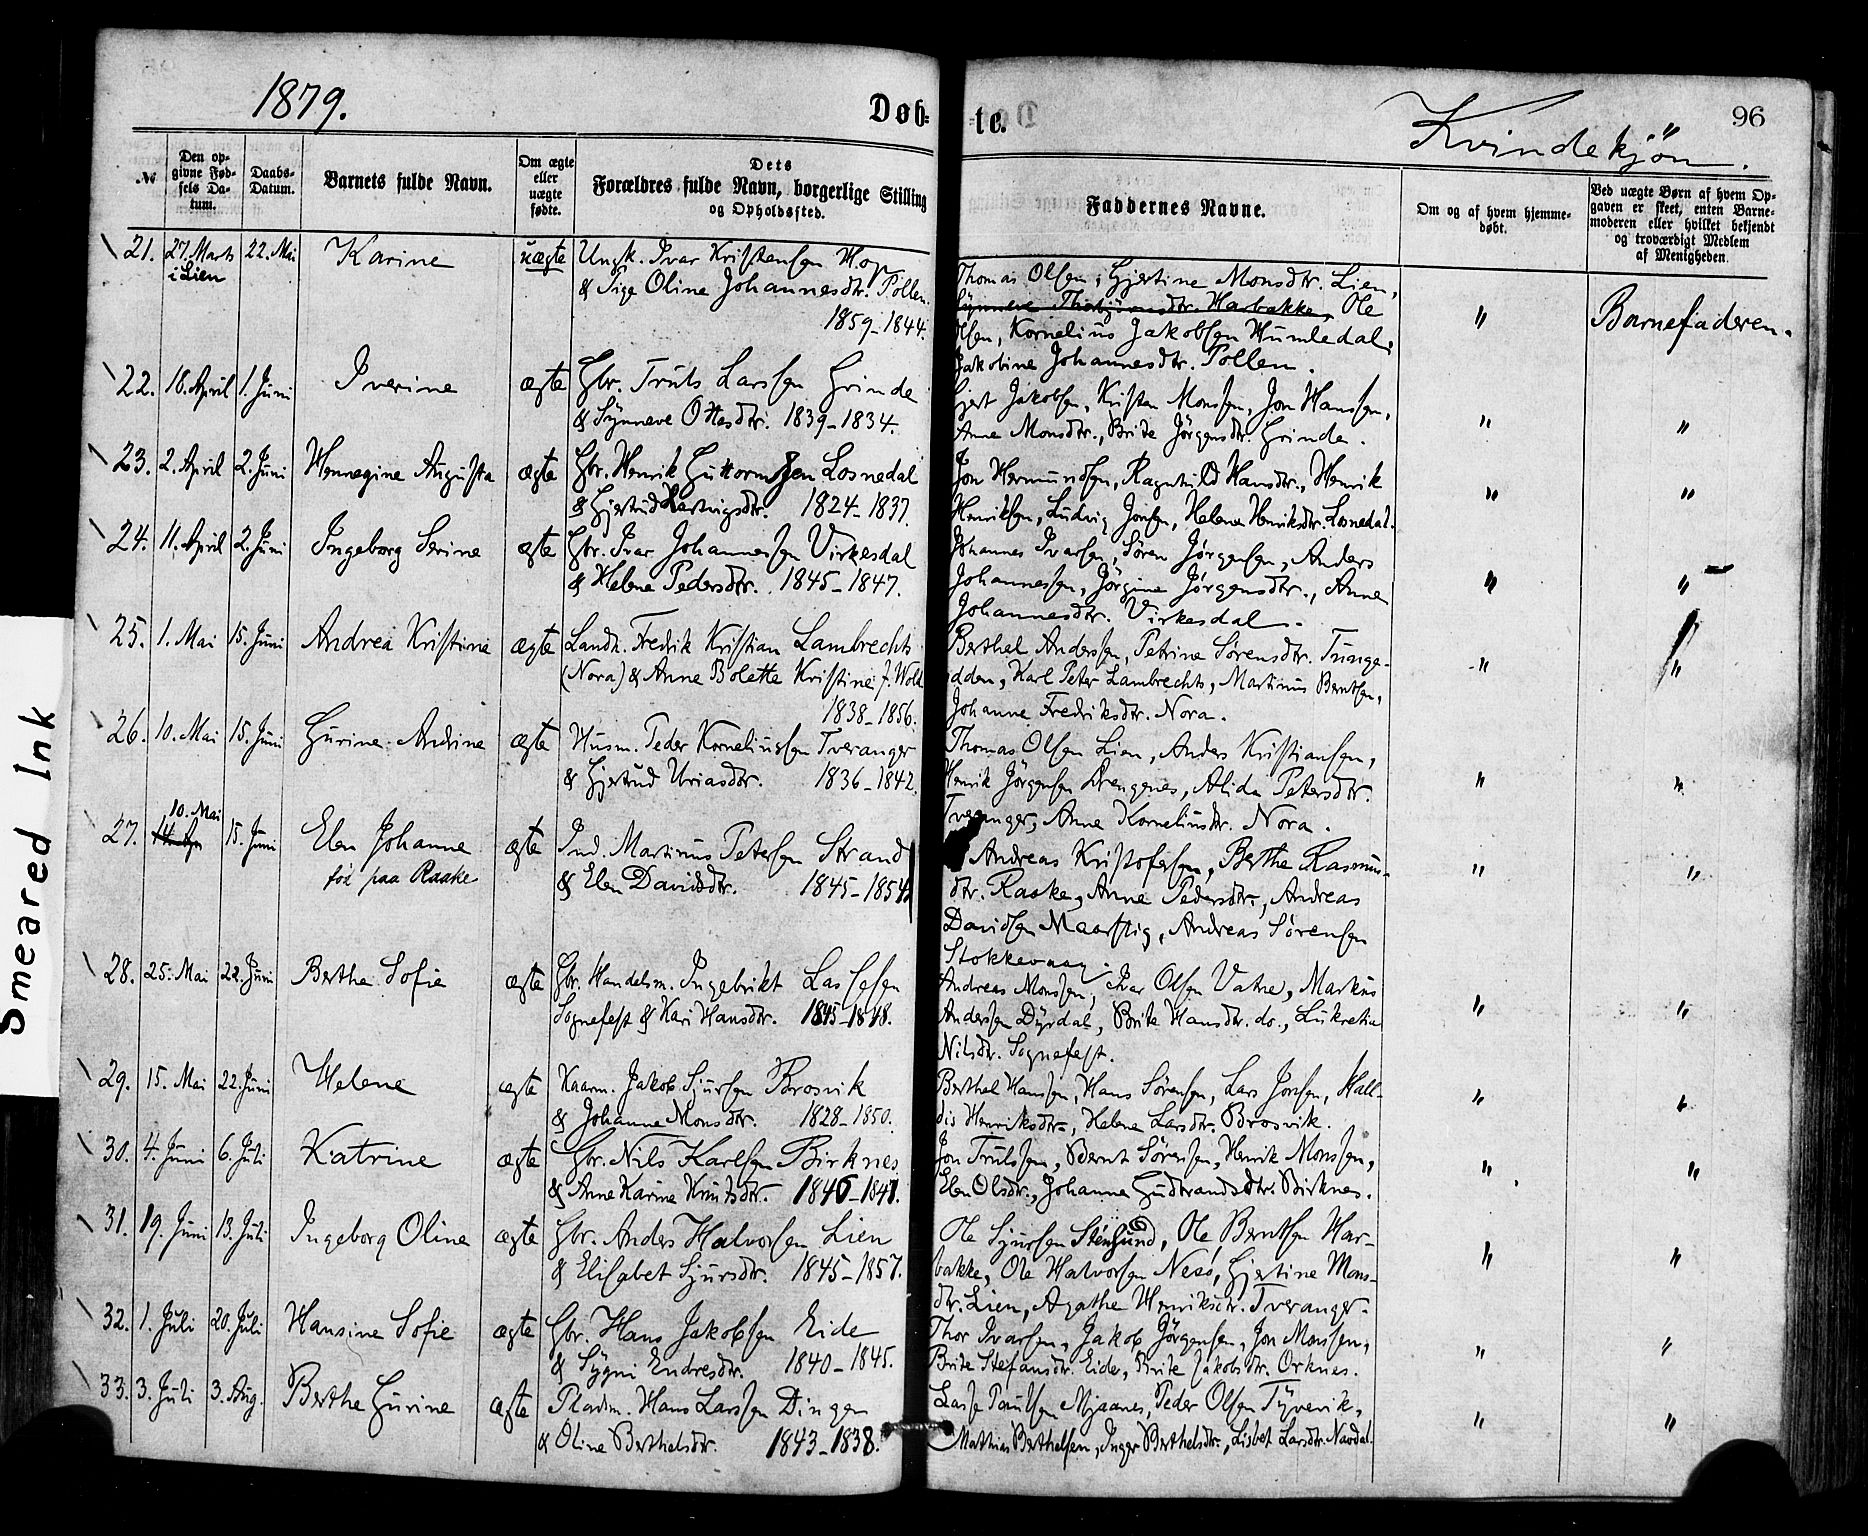 1879.
Døb-
te.
Kvindekjøn.
96
№
Den op-
givne Fød-
sels Da-
tum.
Daabs-
Datum.
Barnets fulde Navn.
Om ægte
eller
uægte
fødte.
Dets
Forældres fulde Navn, borgerlige Stilling
og Opholdssted.
Faddernes Navne.
Om og af hvem hjemme-
døbt.
Ved uægte Børn af hvem Op-
gaven er skeet, enten Barne-
moderen eller hvilket bekjendt
og troværdigt Medlem
af Menigheden.
21. 27. Marts 22. Mai Karine uægte Ungk. Ivar Kristensen Hop
i Lien
& Pige Oline Johannesdtr. Pollen.
1859-1844.
Thomas Olsen, Gjertine Monsdtr. Lien,
Synneve Thorbjørnsdtr. Harbakke, Ole
Olsen, Kornelius Jakobsen Humledal,
Jakobine Johannesdtr. Pollen.
" Barnefaderen.
22. 18. April 1. Juni Iverine ægte Gbr. Truls Larssen Grinde
& Synneve Ottesdtr. 1839-1834.
Gjert Jakobsen, Kristen Monsen, Jon Hanssen,
Anne Monsdtr., Brite Jørgensdtr. Grinde.
" "
23. 2. April 2. Juni Hennegine Augusta ægte Gbr. Henrik Guttormsen Losnedal
& Gjertrud Hartvigsdtr. 1824-1837.
Jon Hermundsen, Ragnhild Hansdtr., Henrik
Henriksen, Ludvig Jonsen, Helene Henriksdtr. Losnedal.
" "
24. 11. April 2. Juni Ingeborg Serine ægte Gbr. Ivar Johannessen Virkesdal
& Helene Pedersdtr. 1845-1847.
Johannes Ivarsen, Søren Jørgensen, Anders
Johannessen, Jørgine Jørgensdtr., Anne
Johannesdtr. Virkesdal.
" "
25. 1. Mai 15. Juni Andrea Kristine ægte Landh. Fredrik Kristian Lambrechts
(Nora) & Anne Bolette Kristine f. Wold
1838-1856.
Berthel Anderssen, Petrine Sørensdtr. Tunge-
odden, Karl Peter Lambrechts, Martinus Berntsen,
Johanne Fredriksdtr. Nora.
" "
26. 10. Mai 15. Juni Gurine Andrine ægte Husm. Peder Korneliussen Tveranger
& Gjertrud Uriasdtr. 1836-1842.
Thomas Olsen Lien, Anders Kristiansen,
Henrik Jørgensen Drengenes, Alida Petersdtr.
Tveranger, Anne Korneliusdtr. Nora.
" "
10. Mai
27. 15. Juni Elen Johanne ægte Ind. Martinus Petersen Strand
fød paa Raake
& Elen Davidsdtr. 1845-1854
Andreas Kristofersen, Berthe Rasmus-
dtr. Raake, Anne Pedersdtr., Andreas
Davidsen Maarstig, Andreas Sørensen
Stokkevaag.
" "
28. 25. Mai 22. Juni Berthe Sofie ægte Gbr. Handelsm. Ingebrikt Lassesen
Sognefest & Kari Hansdtr. 1845-1848.
Andreas Monsen, Ivar Olsen Vatne, Markus
Andersen Dyrdal, Brite Hansdtr. do., Lukretia
Nilsdtr. Sognefest.
" "
29. 15. Mai 22. Juni Helene ægte Kaarm. Jakob Sjursen Brosvik
& Johanne Monsdtr. 1828-1850.
Berthel Hanssen, Hans Sørensen, Lars Jonsen, Hall-
dis Henriksdtr., Helene Larsdtr. Brosvik.
" "
30. 4. Juni 6. Juli Katrine ægte Gbr. Nils Karlsen Birknes
& Anne Karine Knutsdtr. 1846-1841.
Jon Trulssen, Bernt Sørensen, Henrik Monssen,
Elen Olsdtr., Johanne Gudbrandsdtr. Birknes.
" "
31. 19. Juni 13. Juli Ingeborg Oline ægte Gbr. Anders Halvorsen Lien
& Elisabet Sjursdtr. 1845-1857.
Ole Sjursen Stensund, Ole Berntsen Har-
bakke, Ole Halvorsen Nesø, Gjertine Mons-
dtr. Lien, Agathe Henriksdtr. Tveranger.
" "
32. 1. Juli 20. Juli Hansine Sofie ægte Gbr. Hans Jakobsen Eide
& Sygni Endresdtr. 1840-1845.
Thor Ivarsen, Jakob Jørgensen, Jon Monssen,
Brite Stefansdtr. Eide, Brite Jakobsdtr. Orknes.
" "
33. 3. Juli 3. Aug. Berthe Gurine ægte Pladsm. Hans Larssen Dingen
& Oline Berthelsdtr. 1843-1838.
Lasse Paulsen Mjaanes, Peder Olsen Tyvevik,
Mathias Berthelsen, Inger Berthelsdtr., Lisbet Larsdtr. Navdal.
" "
Smeared Ink